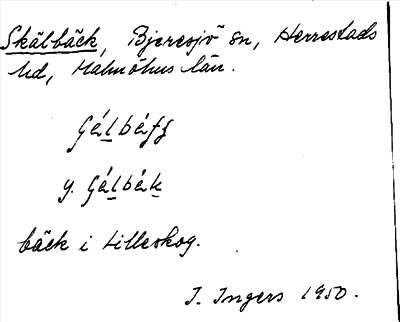 Skälbäck, Bjeresjö sn, Herrestads
hd, Malmöhus län.
bäck i Lilleskog.
I. Ingers 1950.